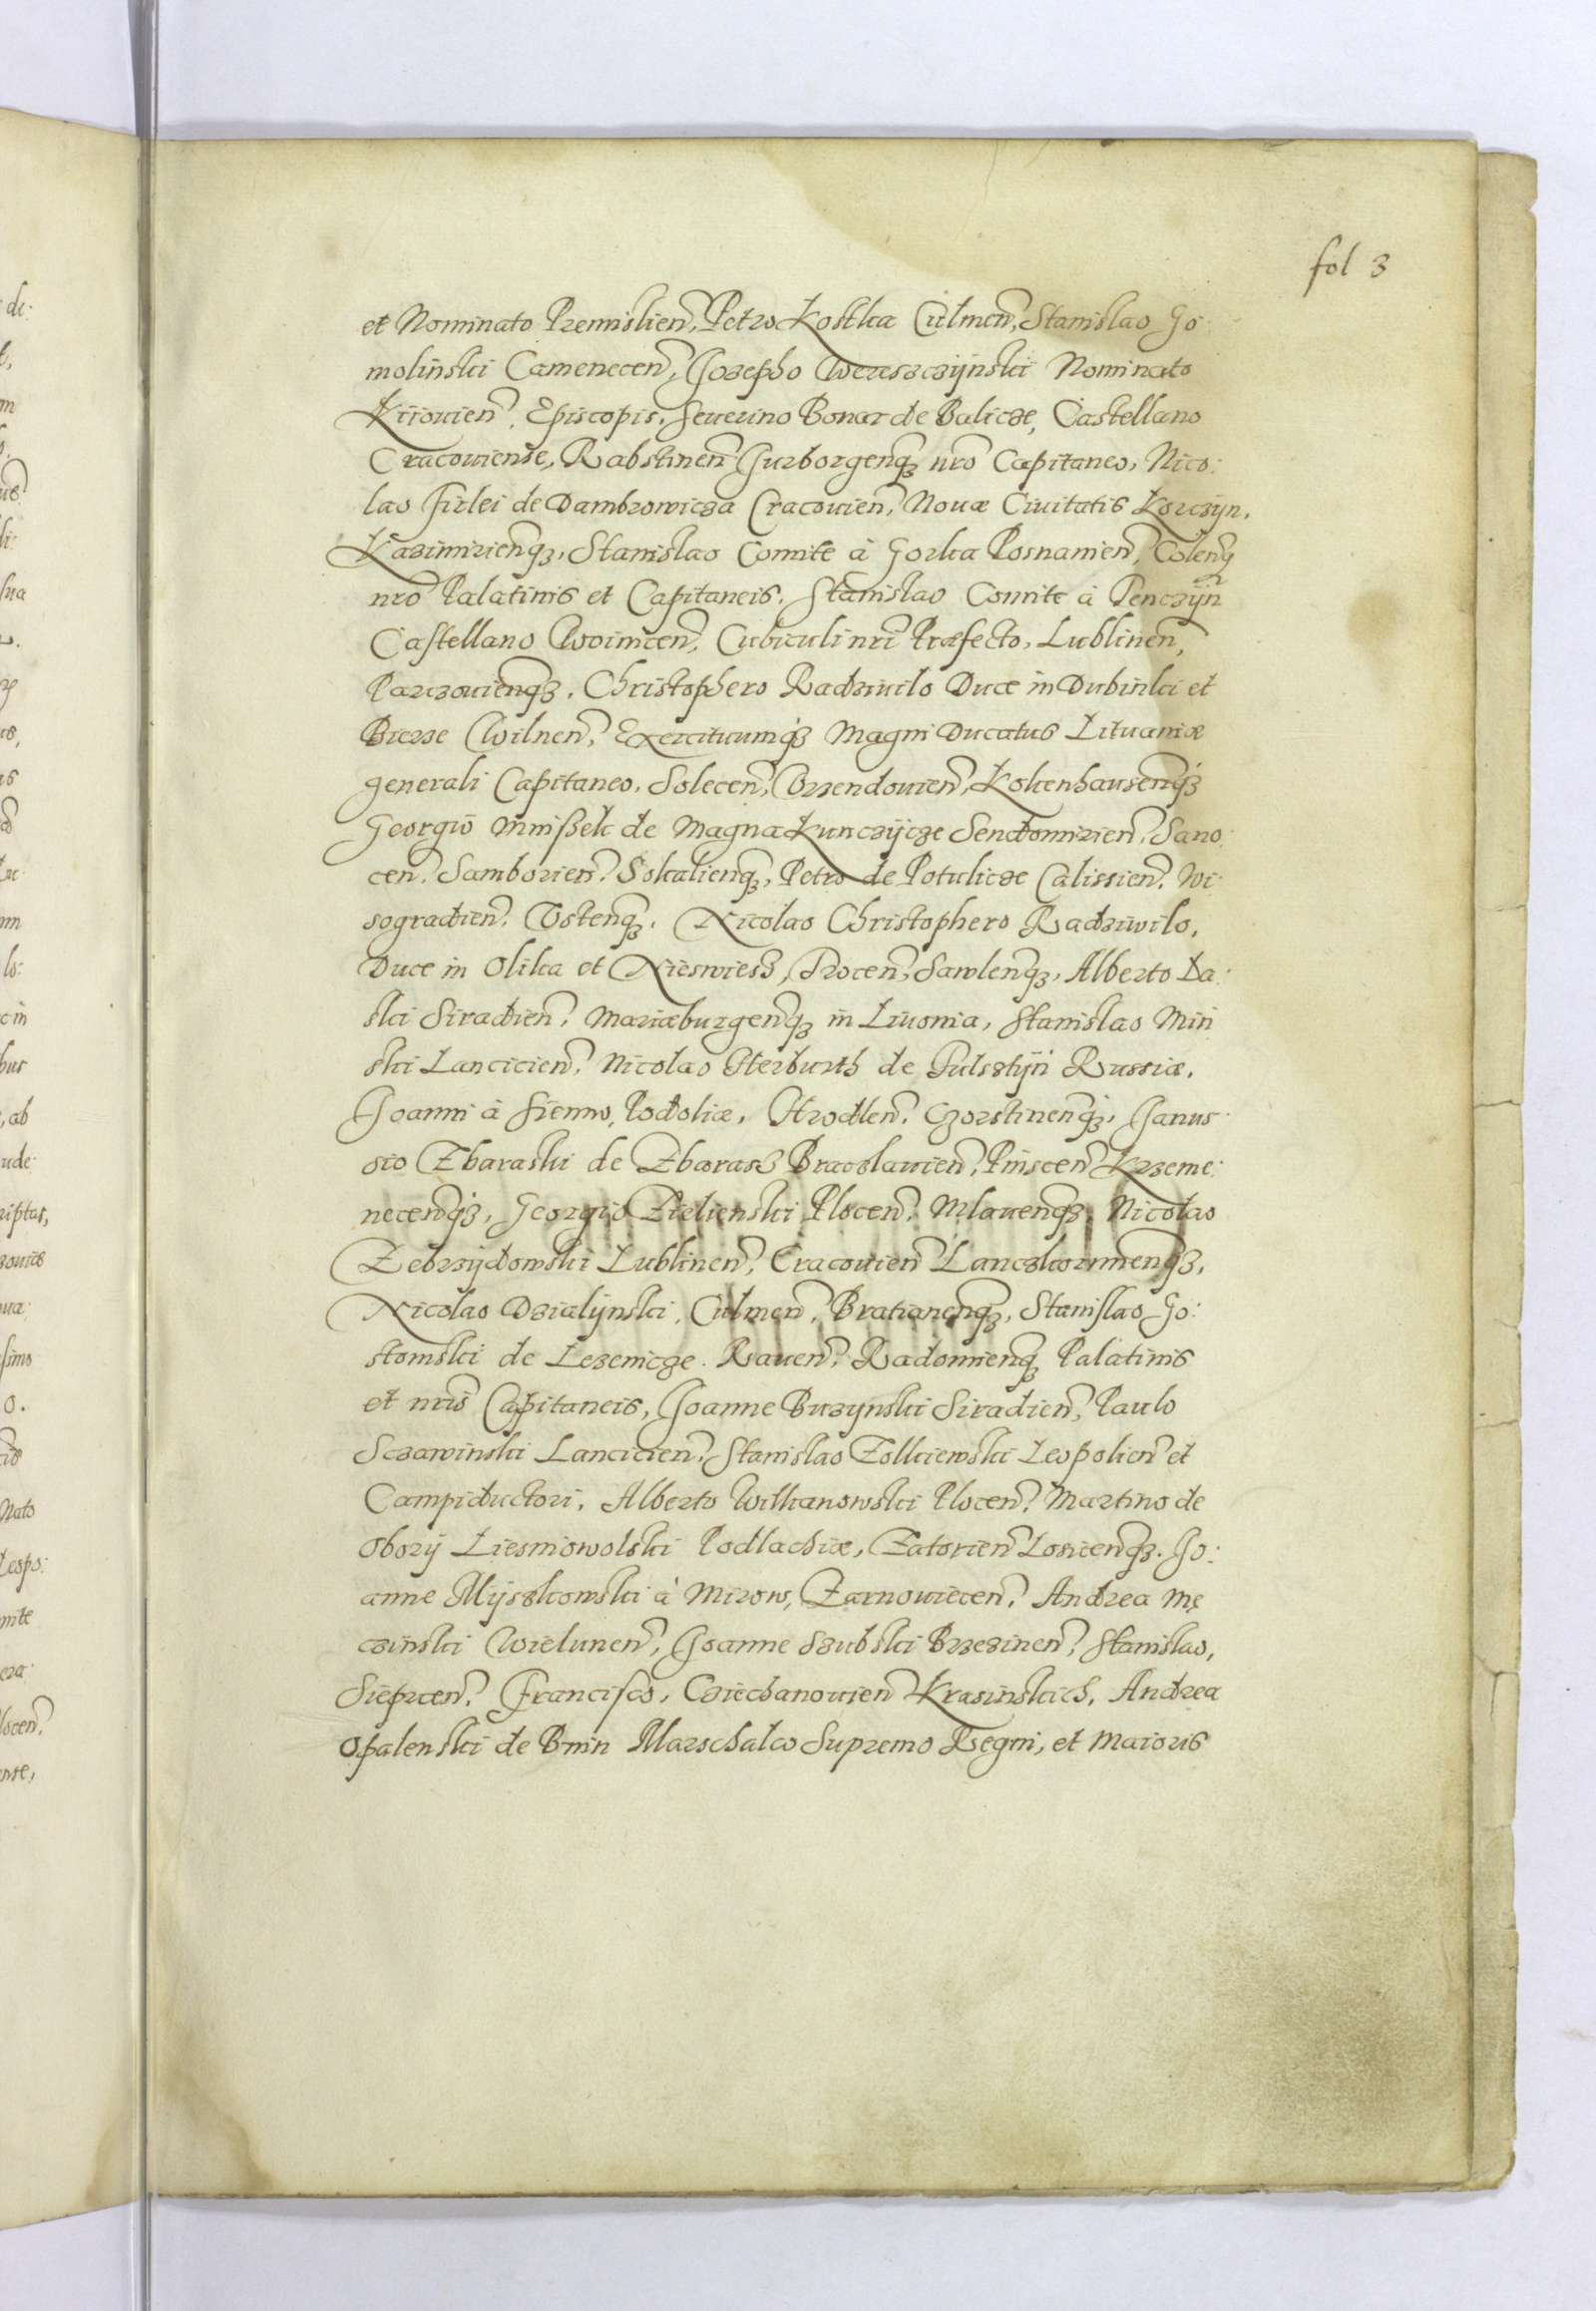 fol 3
et Nominato Premislien̄, Petro Kostka Culmen̄, Stanislao Go:
moliński Camenecen̄, Josepho Wereszczyński Nominato
Kijouien̄. Episcopis. Seuerino Bonar de Balicze, Castellano
Cracouiense, Rabstinen̄ Jurborgenq̄ꝫ nr̄o Capitaneo, Nico:
lao Firlei de Dambrowicza Cracouien̄, Nouæ Ciuitatis Korczyn.
Kazimirienq̄ꝫ, Stanislao Comite à Gorka Posnanien̄, Colenq̄
nr̄o Palatinis et Capitaneis. Stanislao Comite à Tenczyn̄
Castellano Woinicen̄, Cubiculi nr̄i Præfecto, Lublinen̄,
Parczouienq̄ꝫ. Christophero Radziuilo Duce in Dubinki et
Bierze Wilnen̄, Exercituumq̄ꝫ Magni Ducatus Lituaniæ
generali Capitaneo, Solecen̄, Orzendouien̄, Kokenhausenq̄ꝫ
Georgio Mnißek de Magna Kunczycze Sendomirien̄. Sano:
cen̄. Samborien̄. Sokalienq̄ꝫ, Petro de Potulicze Calissien̄. Wi:
sogradien̄. Ostenq̄ꝫ. Nicolao Christophero Radziwilo,
Duce in Olika et Nieswiesz, Trocen̄, Sawlenq̄ꝫ, Alberto La:
ski Siradien̄. Mariæburgenq̄ꝫ in Liuonia, Stanislao Min
ski Lancicien̄. Nicolao Herburth de Fulsztyn Russiæ.
Joanni à Sienno, Podoliæ, Hrodlen̄. Czorstinenq̄ꝫ, Janus:
sio Zbaraski de Zbarasz Braczlauien̄, Pinscen̄ Krzeme:
necenq̄ꝫ, Georgio Zielienski Plocen̄. Mlauenq̄ꝫ, Nicolao
Zebrzydowski Lublinen̄, Cracouien̄ Lanczkorunenq̄ꝫ,
Nicolao Dzialynski, Culmen̄, Bratianenq̄ꝫ, Stanislao Go:
stomski de Lezenicze. Rauen̄. Radomienq̄ꝫ Palatinis
et nr̄is Capitaneis, Joanne Buzynski Siradien̄, Paulo
Sczawinski Lancicien̄, Stanislao Zolkiewski Leopolien̄ et
Campiductori, Alberto Wilkanowski Plocen̄. Martino de
Obory Liesniowolski Podlachiæ, Zatorien̄ Losicenq̄ꝫ. Jo:
anne Myszkowski à Mirow, Zarnouiecen̄. Andrea Mę
czinski Wielunen̄, Joanne Szubski Brzezinen̄, Stanislao,
Sieprcen̄. Francisco, Cziechanouien̄ Krasinskich, Andrea
Opalenski de Bnin Marschalco Supremo Regni, et Maioris